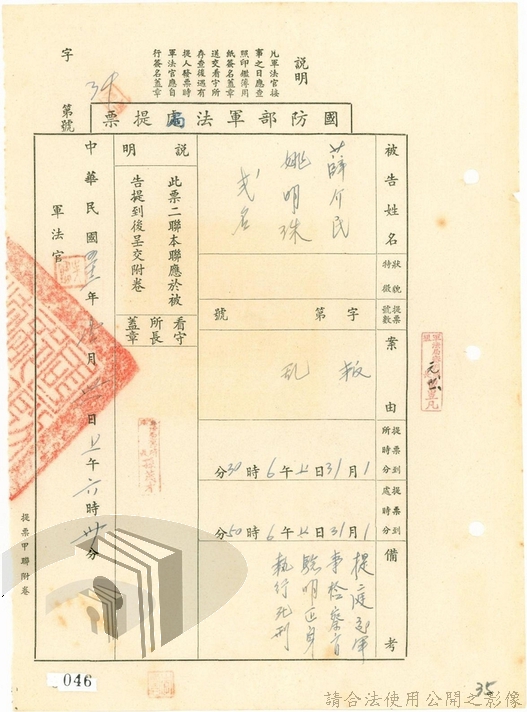 說明
凡軍法官接
事之日應查
照印鑑簿用
紙簽名蓋章
送交看守所
存查後遇有
提人發票時
軍法官應自
行簽名蓋章
字
第 號
34
國防部軍法局提票
被告姓名
薛介民
姚明珠
貳名
狀貌特徵
提票號數
字 第 號
案由
叛亂
提票到所時分
1月31日上午6時30分
提票到處時分
1月31日上午6時50分
備考
提庭交軍
事檢察官
驗明正身
執行死刑
說明
此票二聯本聯應於被
告提到後呈交附卷
看守所長蓋章
中華民國 年 月 日上午六時卅分
軍法官
提票甲聯附卷
046
35
請合法使用公開之影像